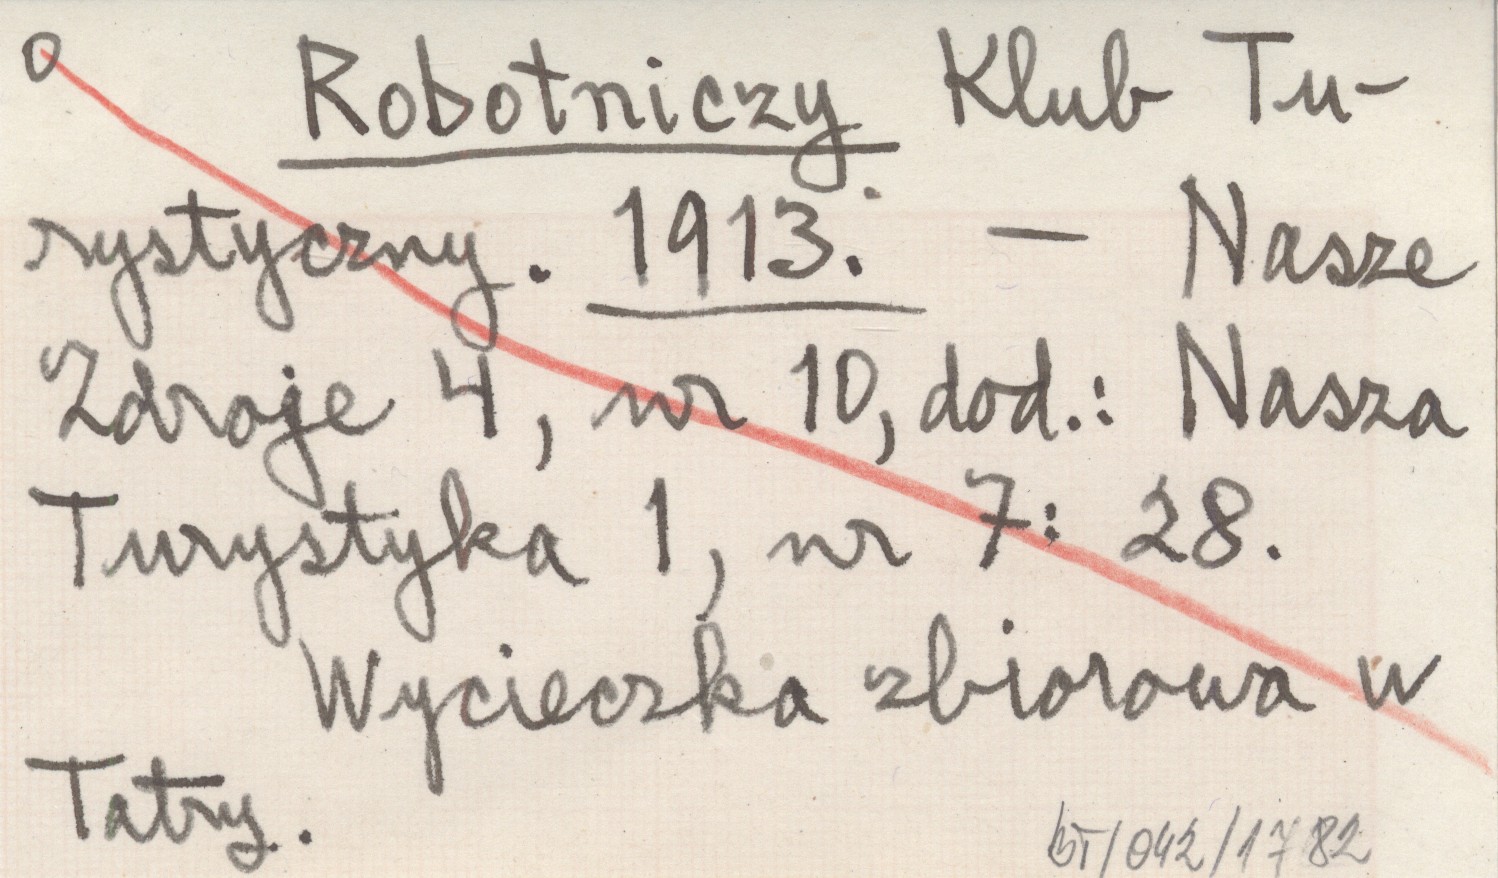 o Robotniczy Klub Tu-
rystyczny. 1913. — Nasze
Zdroje 4, nr 10, dod.: Nasza
Turystyka 1, nr 7: 28.
Wycieczka zbiorowa w
Tatry.
BT/042/1782